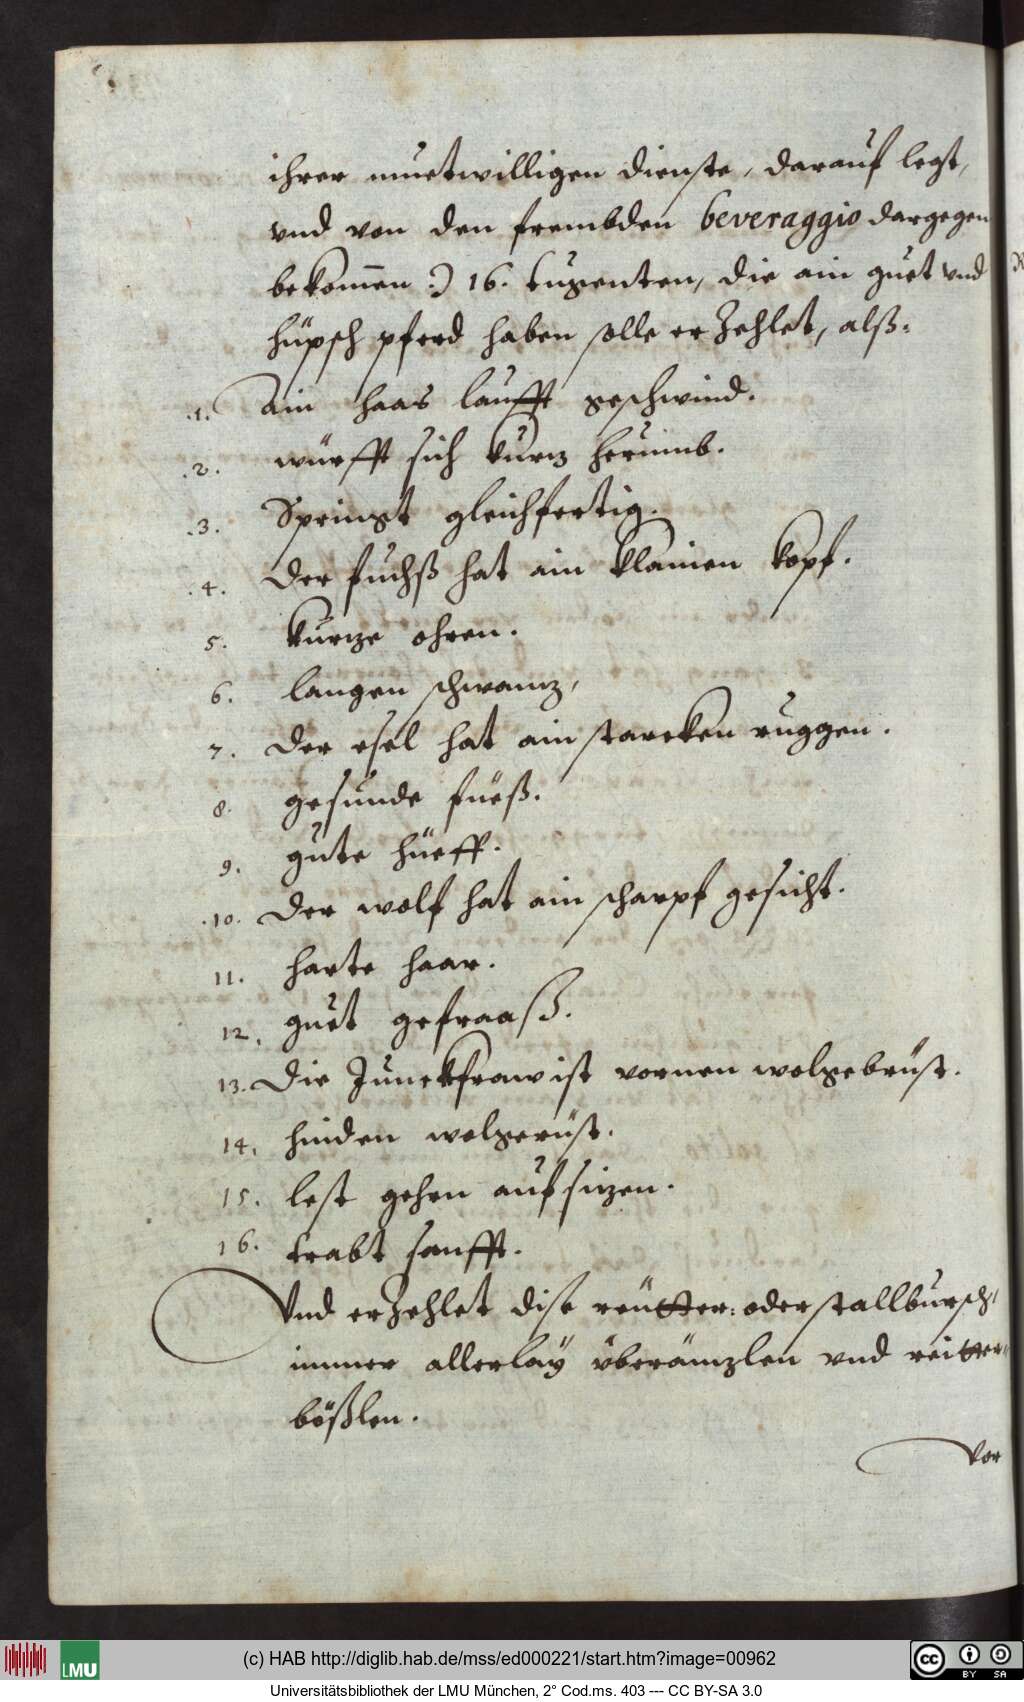 ihrer muetwilligen dienste, darauf legt,
vnd von den frembden beveraggio dargegen
bekom̄en :) 16. tugenten, die ain guet vnd
hüpsch pferd haben solle er Zehlet, alß:
.1. Ain haas laufft geschwind.
.2. würfft sich kurz herumb.
.3. Springt gleichfertig.
.4. Der fuchß hat ain klainen kopf.
5. kurze ohren.
6. langen schwanz,
7. Der esel hat ain starcken ruggen.
8. gesunde füeß.
9. gute hüeff.
.10. Der wolf hat ain scharpf gesicht.
11. harte haar.
12. guet gefraaß.
13. Die Junckfraw ist vornen wolgebrüst.
14. hinden wolgerüst.
15. lest gehrn aufsizen.
16. trabt sanfft.
Vnd erZehlet dise reütter: oder stallbursch,
immer allerlay überämzlen vnd reitter=
bößlen.
Vor
(c) HAB http://diglib.hab.de/mss/ed000221/start.htm?image=00962
LMU
BY SA
Universitätsbibliothek der LMU München, 2° Cod.ms. 403 --- CC BY-SA 3.0